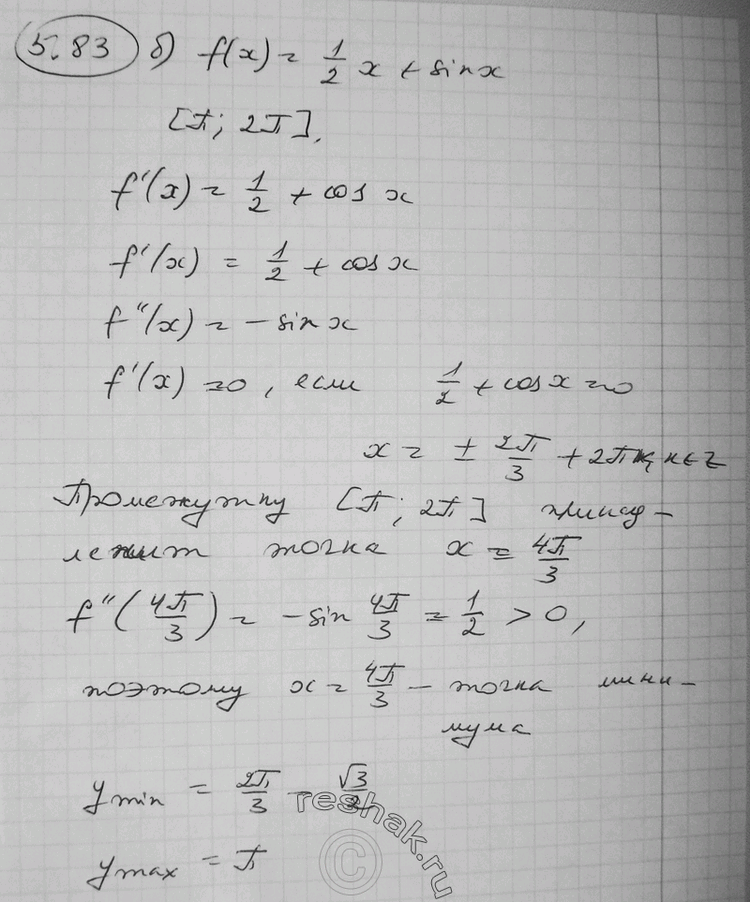 5.83 б) f(x) = 1/2 x + sin x
[π; 2π],
f'(x) = 1/2 + cos x
f'(x) = 1/2 + cos x
f''(x) = - sin x
f'(x) = 0, если 1/2 + cos x = 0
x = ± 2π/3 + 2πk, k ∈ Z
Промежутку [π; 2π] принад-
лежит точка x = 4π/3
f''(4π/3) = - sin 4π/3 = 1/2 > 0,
поэтому x = 4π/3 - точка мини-
мума
y min = 2π/3 - √3/2
y max = π
reshak.ru
©